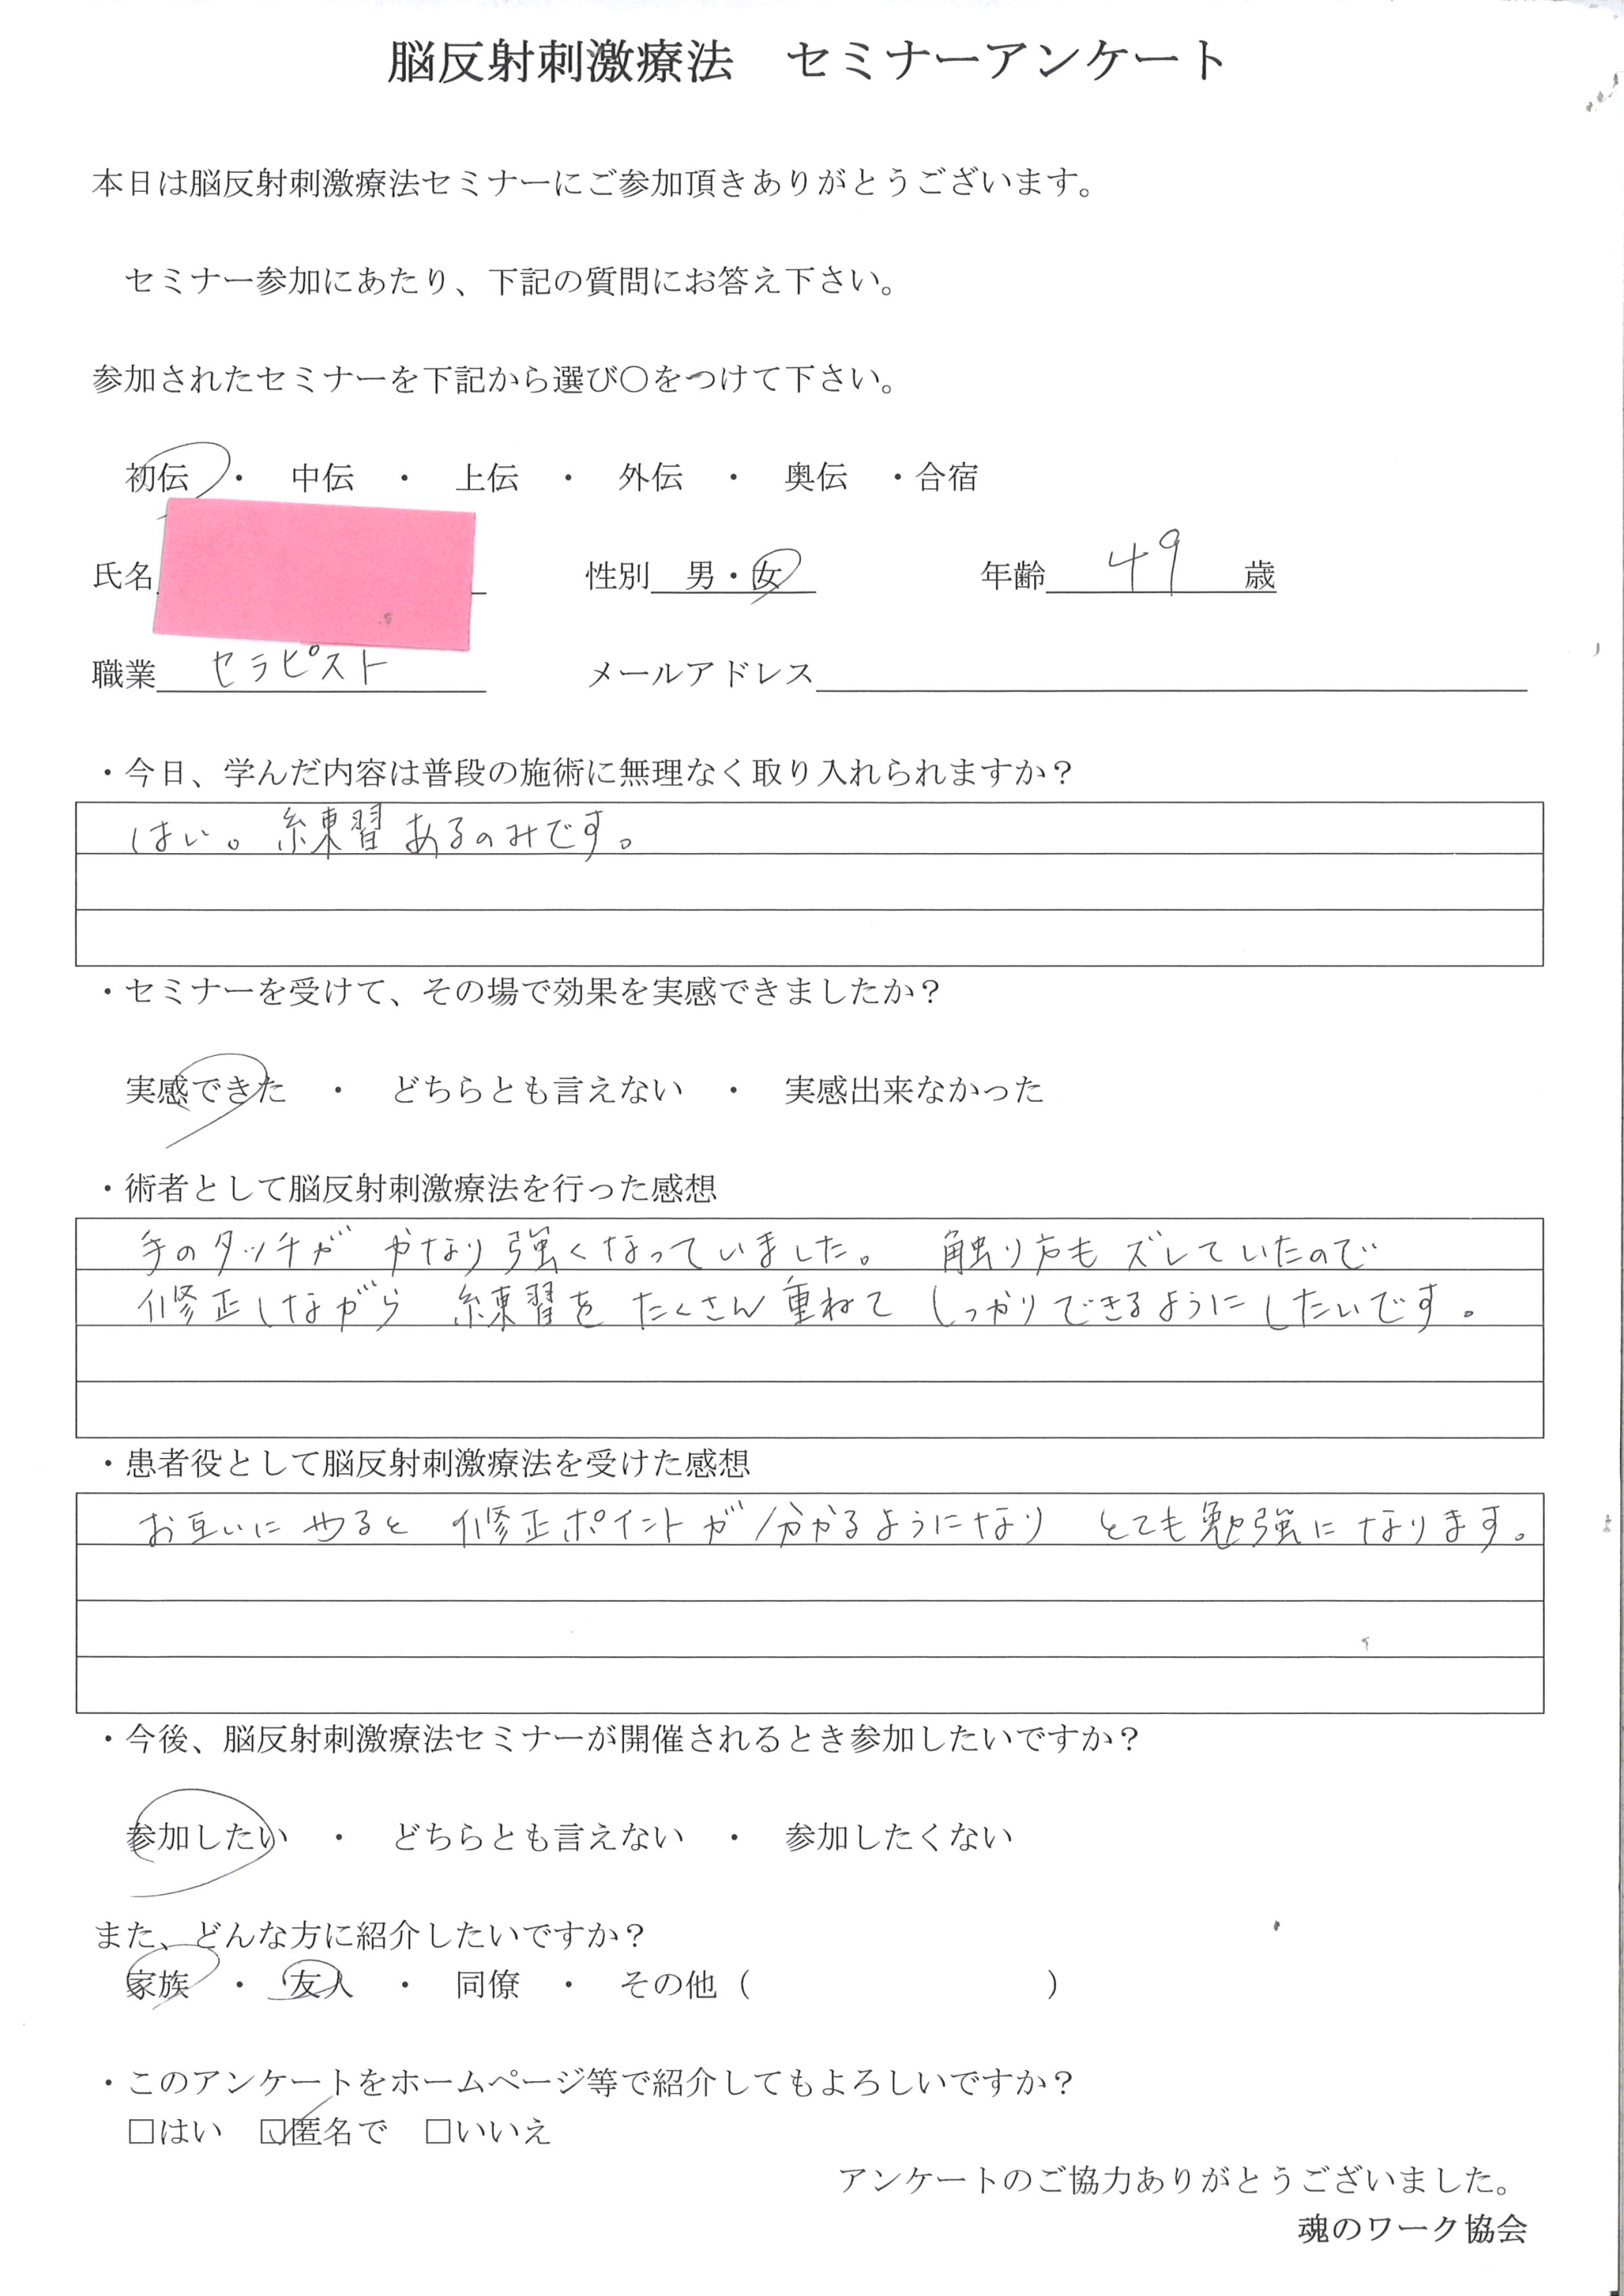 脳反射刺激療法　セミナーアンケート
本日は脳反射刺激療法セミナーにご参加頂きありがとうございます。
セミナー参加にあたり、下記の質問にお答え下さい。
参加されたセミナーを下記から選び〇をつけて下さい。
初伝　・　中伝　・　上伝　・　外伝　・　奥伝　・合宿
氏名　性別　男・女　年齢　49　歳
職業　セラピスト　メールアドレス
・今日、学んだ内容は普段の施術に無理なく取り入れられますか？
はい。練習あるのみです。
・セミナーを受けて、その場で効果を実感できましたか？
実感できた　・　どちらとも言えない　・　実感出来なかった
・術者として脳反射刺激療法を行った感想
手のタッチが かなり強くなっていました。 触り方も ズレていたので
修正しながら 練習を たくさん重ねて しっかりできるようにしたいです。
・患者役として脳反射刺激療法を受けた感想
お互いに やると 修正ポイントが分かるようになり とても勉強になります。
・今後、脳反射刺激療法セミナーが開催されるとき参加したいですか？
参加したい　・　どちらとも言えない　・　参加したくない
また、どんな方に紹介したいですか？
家族　・　友人　・　同僚　・　その他（　　　　　　　　　）
・このアンケートをホームページ等で紹介してもよろしいですか？
□はい　☑匿名で　□いいえ
アンケートのご協力ありがとうございました。
魂のワーク協会